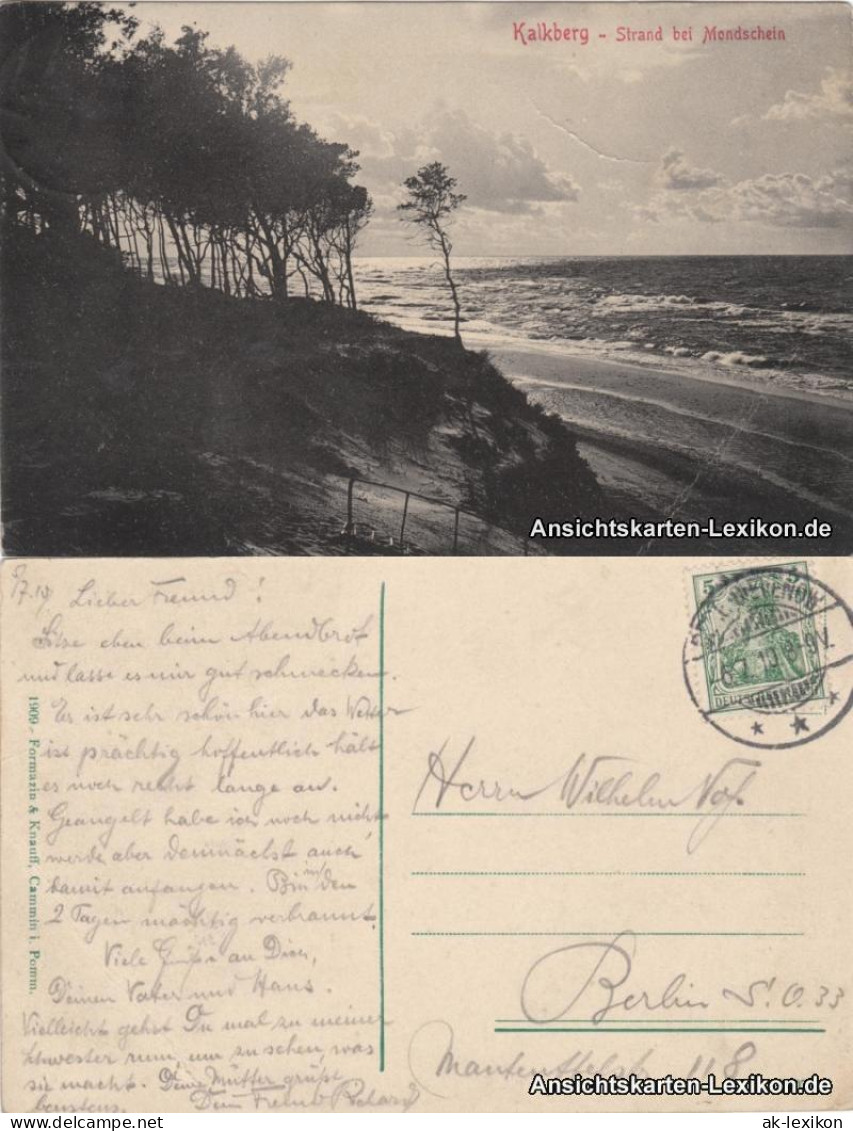 Kalkberg - Strand bei Mondschein
Ansichtskarten-Lexikon.de
Lieber Freund!
Sitze eben beim Abendbrot
und lasse es mir gut schmecken.
Es ist sehr schön hier das Wetter
ist prächtig hoffentlich hält
es noch recht lange an.
Geangelt habe ich noch nicht
werde aber demnächst auch
damit anfangen. Bin in den
2 Tagen mächtig verbrannt.
Viele Grüße an Dich,
Deinen Vater und Hans.
Vielleicht gehst Du mal zu meiner
Schwester rum, um zu sehen, was
sie macht. Deine Mutter grüßt
bestens. Dein Freund Richard
1909 - Formazin & Knauff, Cammin i. Pomm.
5 5
Herrn Wilhelm
Berlin S.O. 33
118
Ansichtskarten-Lexikon.de
ak-lexikon